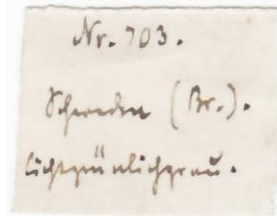 Nr. 703.
Schweden (Br.).
lichtgrünlichgrau.